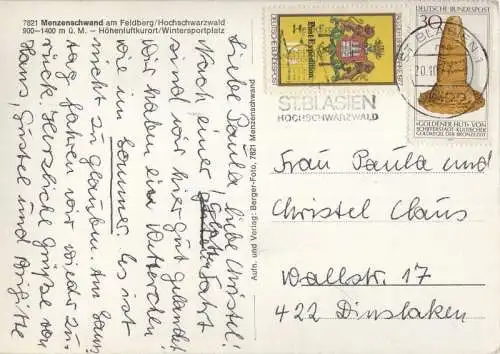 7821 Menzenschwand am Feldberg/Hochschwarzwald
900-1400 m ü. M. – Höhenluftkurort/Wintersportplatz
Liebe Paula, liebe Christel!
Nach einer guten Fahrt
sind wir hier gut gelandet
Wir haben ein Wetterchen
wie im Sommer. Es ist
nicht zu glauben. Am Sams
tag fahren wir wieder zu-
rück. Herzliche Grüße von
Hans, Gustel und Brigitte
Aufn. und Verlag: Berger-Foto, 7821 Menzenschwand
DEUTSCHE BUNDESPOST
Post-Expedition
DEUTSCHE BUNDESPOST
30
»GOLDENER HUT« VON
SCHIFFERSTADT · KULTISCHER
GOLDKEGEL DER BRONZEZEIT
ST. BLASIEN 1
ST. BLASIEN
HOCHSCHWARZWALD
Frau Paula und
Christel Claus
Wallstr. 17
422 Dinslaken